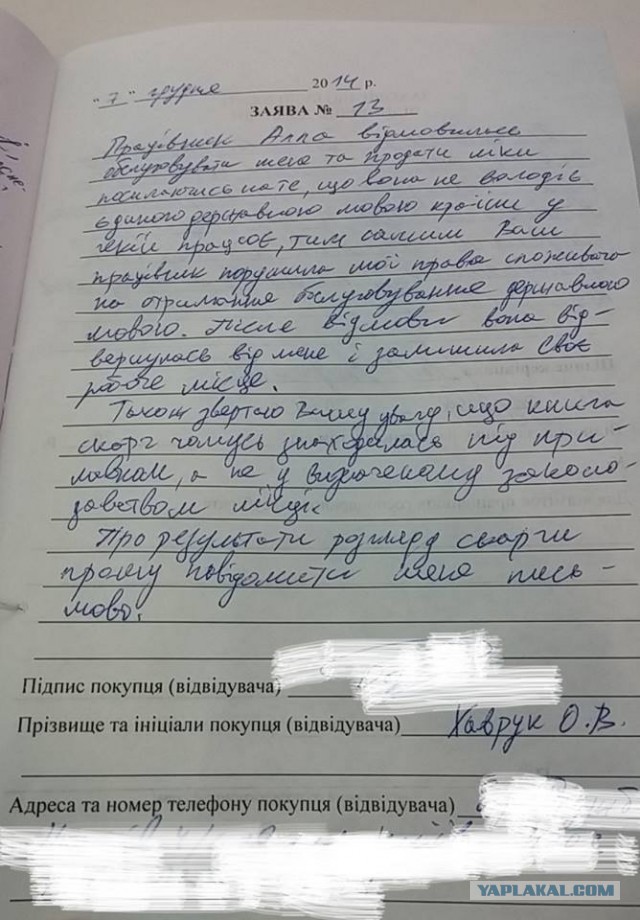 "7" грудня 2014 р.
ЗАЯВА № 13
Працівник Алла відмовилась
обслуговувати мене та продати ліки
посилаючись на те, що вона не володіє
єдиною державною мовою країни у
якій працює, тим самим Ваш
працівник порушила мої права споживача
на отримання обслуговування державною
мовою. Після відмови вона від-
вернулась від мене і залишила своє
робоче місце.
Також звертаю Вашу увагу, що книга
скарг чомусь знаходилась під при-
лавком, а не у визначеному законо-
давством місці.
Про результати розгляду скарги
прошу повідомити мене пись-
мово.
Підпис покупця (відвідувача)
Прізвище та ініціали покупця (відвідувача) Хаврук О.В.
Адреса та номер телефону покупця (відвідувача)
YAPLAKAL.COM